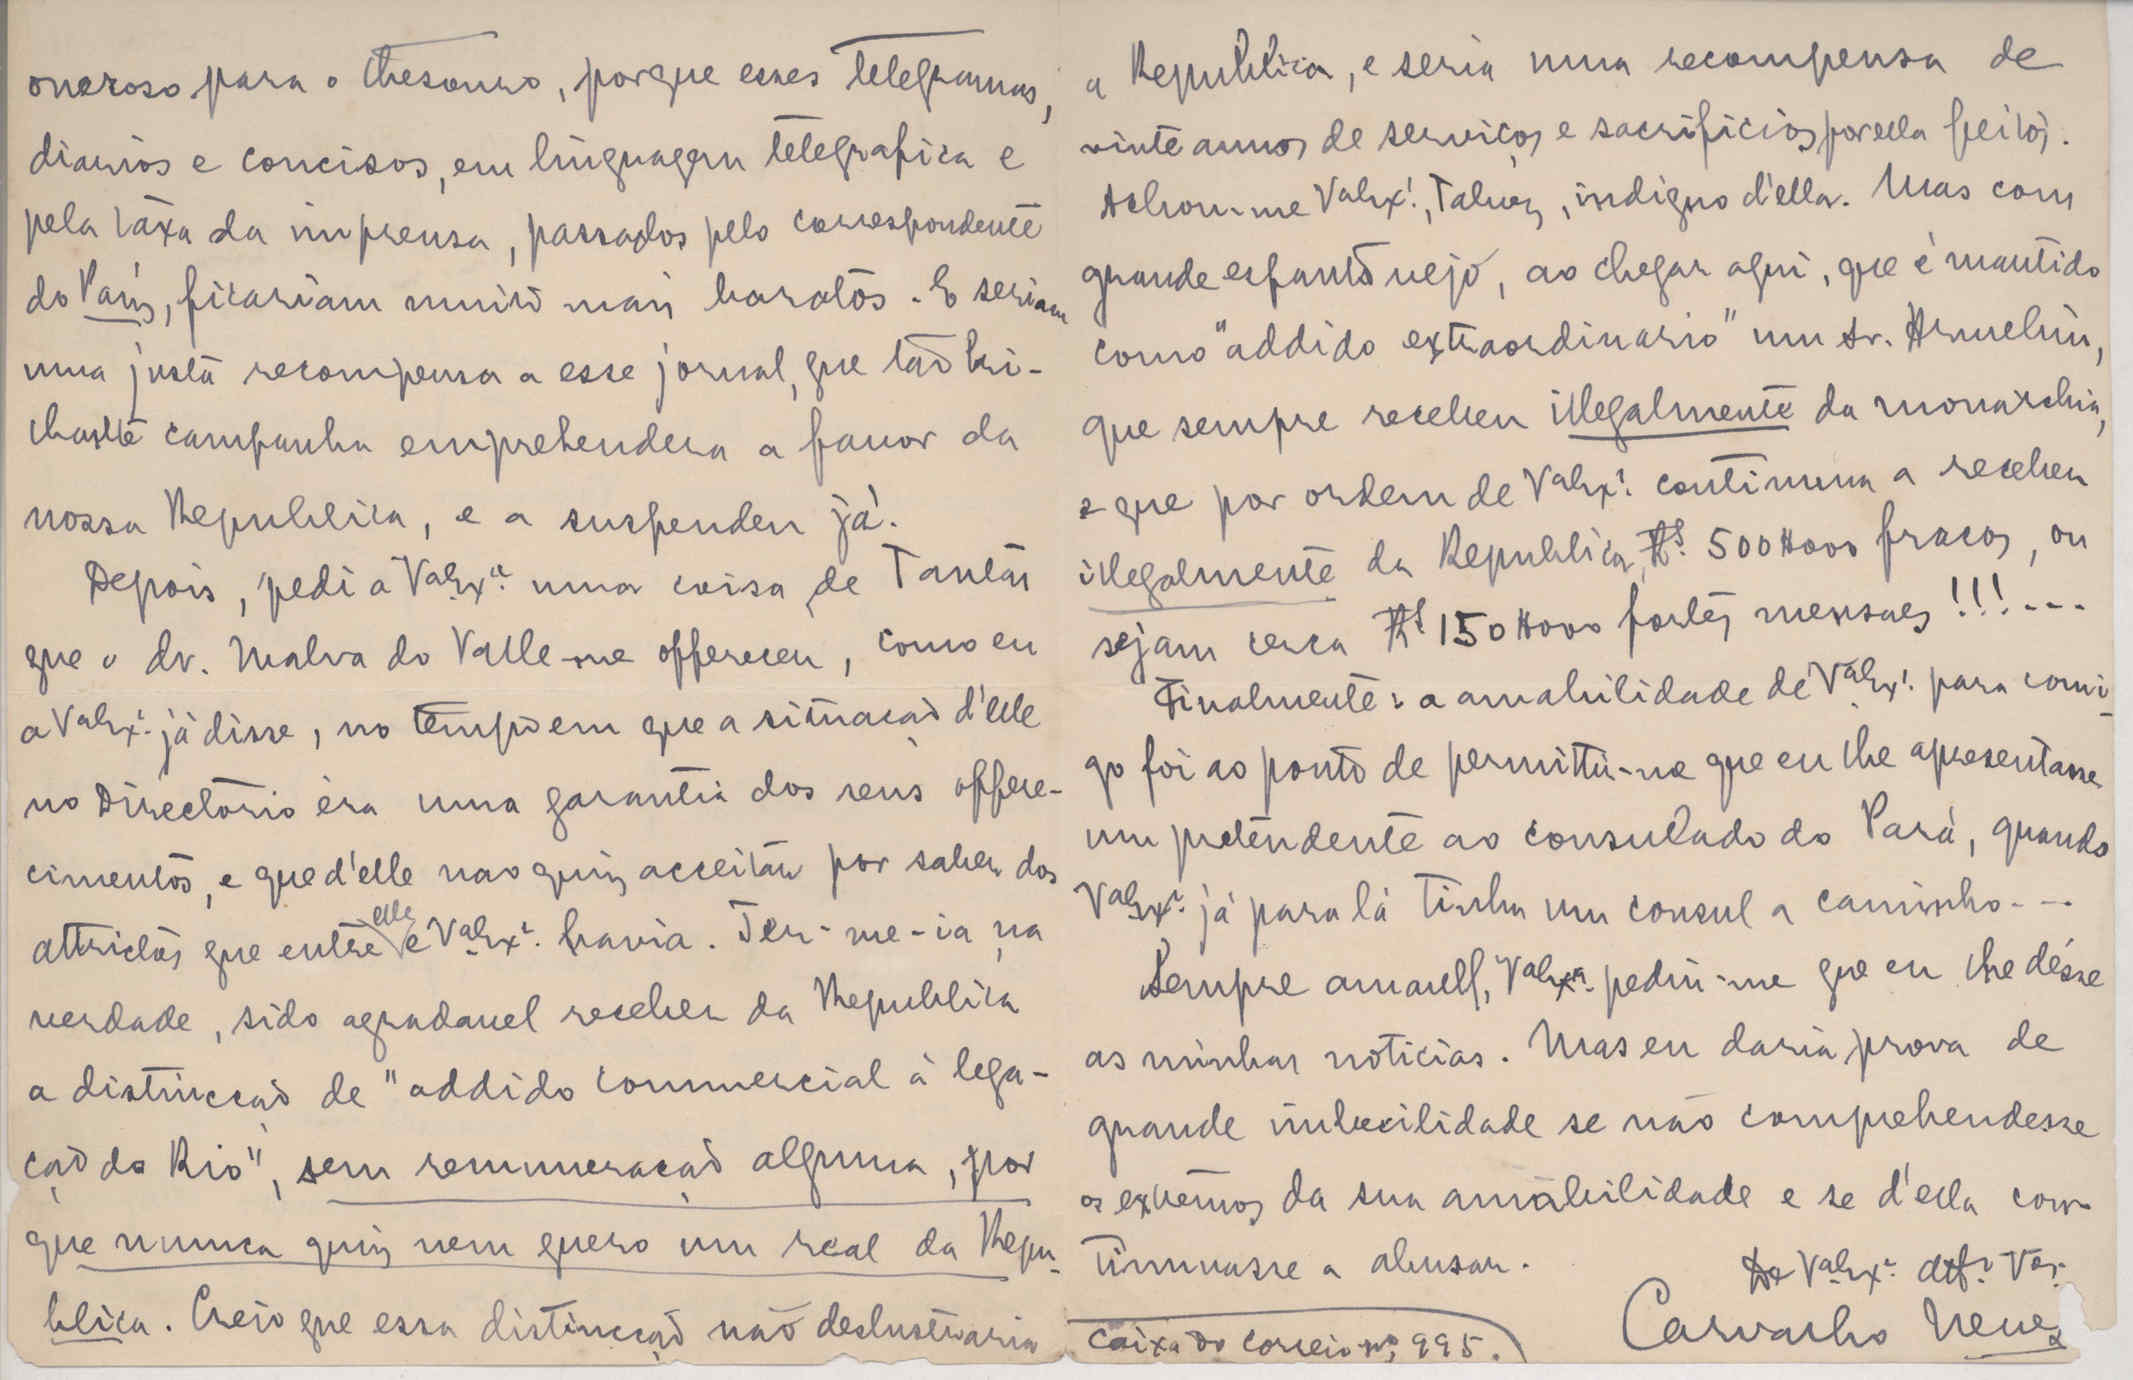 oneroso para o thesouro, porque esses telegramas,
diarios e concisos, em linguagem telegrafica e
pela taxa da imprensa, passados pelo correspondente
do Paiz, ficariam muito mais baratos. E seriam
uma justa recompensa a esse jornal, que tão bri-
lhante campanha emprehendera a favor da
nossa Republica, e a suspendeu já.
Depois, pedi a V.ª Ex.ª uma coisa de tantas
que o dr. Malva do Valle me offereceu, como eu
a V.ª Ex.ª já disse, no tempo em que a situação d'elle
no Directorio era uma garantia dos seus offere-
cimentos, e que d'elle não quiz acceitar por saber dos
attrictos que entre elle e V.ª Ex.ª havia. Ter-me-ia, na
verdade, sido agradavel receber da Republica
a distincção de "addido commercial á lega-
ção do Rio", sem remuneração alguma, por
que nunca quiz nem quero um real da Repu-
blica. Creio que essa distincção não deslustraria
a Republica, e seria uma recompensa de
vinte annos de serviços e sacrificios por ella feitos.
Achou-me V.ª Ex.ª, talvez, indigno d'ella. Mas com
grande espanto vejo, ao chegar aqui, que é mantido
como "addido extraordinario" um sr. Armelim,
que sempre recebeu illegalmente da monarchia,
e que por ordem de V.ª Ex.ª continua a receber
illegalmente da Republica, Rs. 500$000 fracos, ou
sejam cerca Rs. 150$000 fortes mensaes!!!...
Finalmente: a amabilidade de V.ª Ex.ª para comi-
go foi ao ponto de permittir-me que eu lhe apresentasse
um pretendente ao consulado do Pará, quando
V.ª Ex.ª já para lá tinha um consul a caminho...
Sempre amavel, V.ª Ex.ª pediu-me que eu lhe désse
as minhas noticias. Mas eu daria prova de
grande imbecilidade se não comprehendesse
os extremos da sua amabilidade e se d'ella con-
tinuasse a abusar.
De V.ª Ex.ª att.º V.or
Carvalho Neves
Caixa do Correio nº 995.